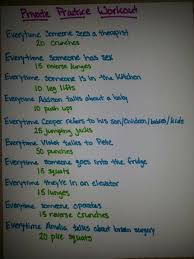 Private Practice Workout
Everytime someone sees a therapist
20 crunches
Everytime someone has sex
15 reverse lunges
Everytime someone is in the kitchen
10 leg lifts
Everytime Addison talks about a baby
10 push ups
Everytime Cooper refers to his son/children/babies/kids
25 jumping jacks
Everytime Violet talks to Pete
50 punches
Everytime someone goes into the fridge
15 squats
Everytime they're in an elevator
15 lunges
Everytime someone operates
15 reverse crunches
Everytime Amelia talks about brain surgery
20 plie squats